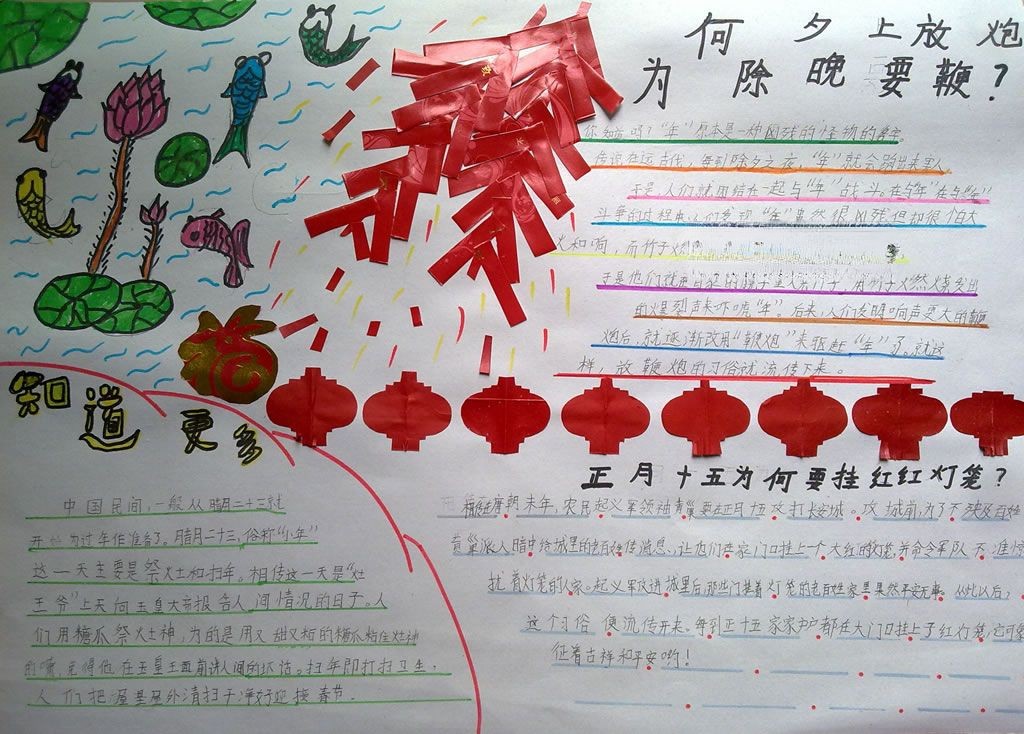 何 夕 上放 炮
为 除 晚 要鞭？
你知道吗？“年”原本是一种凶残的怪物的名字
传说在远古代，每到除夕之夜，“年”就会跑出来害人
于是人们就团结在一起与“年”战斗。在与“年”
斗争的过程中人们发现“年”虽然很凶残但却很怕火
火和响，而竹子燃
于是他们就用自家的
的爆裂声来吓唬“年”。后来，人们发明响声更大的鞭
炮后，就逐渐改用“鞭炮”来驱赶“年”了。就这
样，放鞭炮的习俗就流传下来。
福
知道更多
中国民间，一般从腊月二十三就
开始为过年作准备了。腊月二十三，俗称“小年”
这一天主要是祭灶和扫年。相传这一天是“灶
王爷”上天向玉皇大帝报告人间情况的日子。人
们用糖瓜祭灶神，为的是用又甜又粘的糖瓜粘住灶神
的嘴，免得他在玉皇王面前讲人间的坏话。扫年即打扫卫生，
人们把屋里屋外清扫干净好迎接春节。
正月十五为何要挂红红灯笼？
相传在唐朝末年，农民起义军领袖黄巢要在正月十五攻打长安城。攻城前，为了不殃及百姓
黄巢派人暗中给城里的老百姓传消息，让他们在家门口挂上一个大红灯笼，并命令军队不准惊
扰着灯笼的人家。起义军攻进城里后，那些门挂着灯笼的老百姓家里果然平安无事。从此以后，
这个习俗便流传开来。每到正十五家家户户都在大门口挂上了红灯笼，它可象
征着吉祥和平安哟！